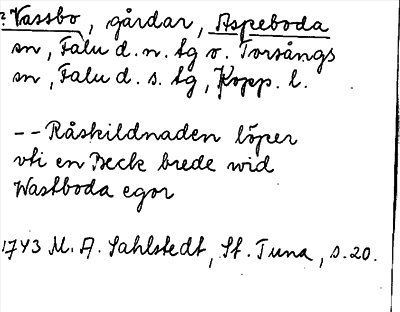 ? Vassbo, gårdar, Aspeboda
sn, Falu d. n. tg o. Torsångs
sn, Falu d. s. tg, Kopp. l.
-- Råskildnaden löper
vti en Beck brede wid
Wastboda egor
1743 M. A. Sahlstedt, St. Tuna, s. 20.